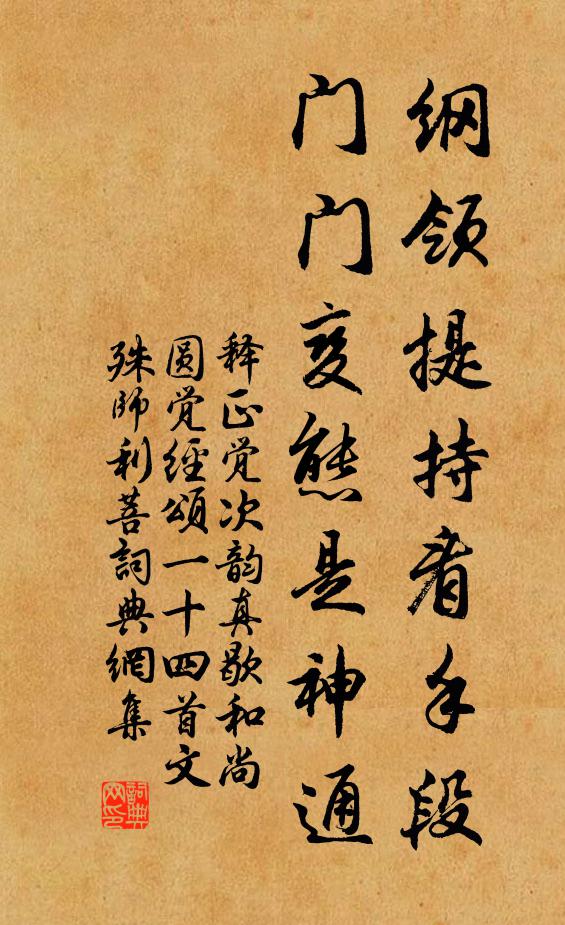 纲领提持看手段
门门变熊是神通
释正觉次韵真歇和尚
圆觉经颂一十四首文
殊师利菩詞典網集
詞典网印